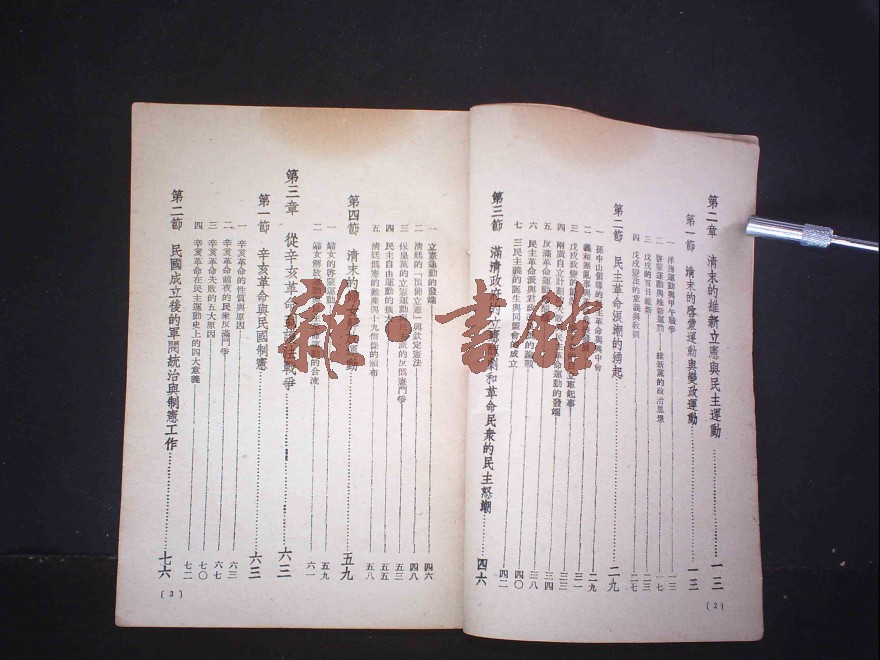 第二章 清末的維新立憲與民主運動……一三
第一節 清末的啓蒙運動與變政運動……一三
一 洋務運動與甲午戰爭……一三
二 啓蒙運動與維新運動 維新黨的政治思想……一七
三 戊戌的百日維新……二三
四 戊戌變法的意義與教訓……二七
第二節 民主革命浪潮的湧起……二九
一 孫中山領導的 革命與興中會……二九
二 義和團亂……三一
三 戊戌政變的 自立軍起事……三一
四 兩廣自立計劃的 民主革命運動的發端……三三
五 反滿革命運動……三四
六 民主革命派與君 論戰……三八
七 三民主義的誕生與同盟會的成立……四〇
四二
第三節 滿清政府的立憲 和革命民衆的民主怒潮……四六
(2)
一 立憲運動的發端……四六
二 清廷的「預備立憲」與欽定憲法……四八
三 保皇黨的立憲運動 民 派的反僞憲鬥爭……五三
四 民主自由運動的擴大……五五
五 清廷僞憲的難產與十九信條的頒布……五八
第四節 清末的婦女 運動……五九
一 婦女的啓蒙運動……五九
二 婦女解放運動 的合流……六一
第三章 從辛亥革命到護法戰爭……六三
第一節 辛亥革命與民國制憲……六三
一 辛亥革命的性質與原因……六三
二 辛亥革命前夜的民衆反滿鬥爭……六七
三 辛亥革命失敗的五大原因……七〇
四 辛亥革命在民主運動史上的四大意義……七二
第二節 民國成立後的軍閥統治與制憲工作……七六
(3)
雜·書館